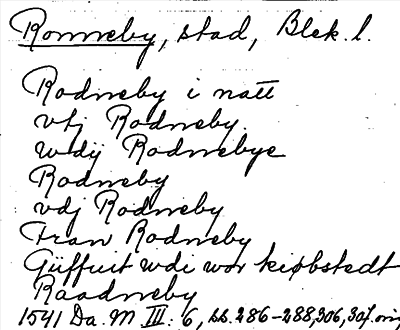 Ronneby, stad, Blek. l.
Rodneby i natt
vtj Rodneby
wdij Rodnebye
Rodneby
vdj Rodneby
Fran Rodneby
Güffuit wdi wor kiøbstedt
Raadneby
1541 Da. M III: 6, ss. 286-288, 306, 307. orig